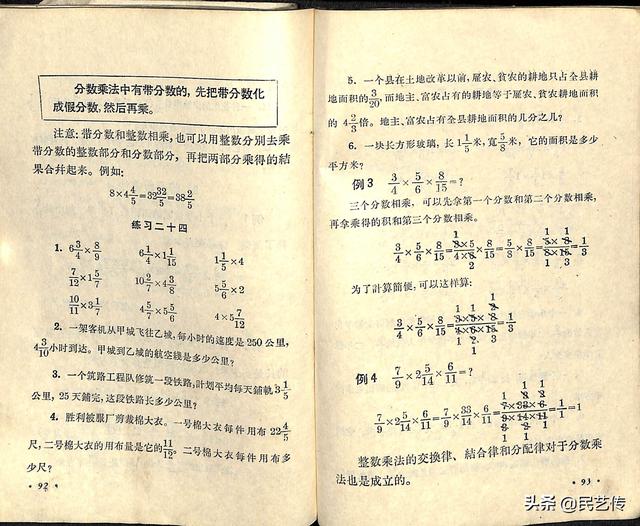 分数乘法中有带分数的，先把带分数化
成假分数，然后再乘。
注意：带分数和整数相乘，也可以用整数分别去乘
带分数的整数部分和分数部分，再把两部分乘得的结
果合并起来。例如：
8×4 4/5=32 32/5=38 2/5
练习二十四
1. 6 3/4×8/9  6 1/4×1 1/15  1 1/5×4
7/12×1 5/7  10 2/7×4 3/8  5 5/6×2
10/11×3 1/7  4 5/7×5 5/6  4×5 7/12
2. 一架客机从甲城飞往乙城，每小时的速度是250公里，
4 3/10小时到达。甲城到乙城的航空线是多少公里？
3. 一个筑路工程队修筑一段铁路，计划平均每天铺轨3 1/5
公里，25天铺完，这段铁路长多少公里？
4. 胜利被服厂剪裁棉大衣。一号棉大衣每件用布22 4/5
尺，二号棉大衣的用布量是它的11/12。二号棉大衣每件用布多
少尺？
· 92 ·
5. 一个县在土地改革以前，雇农、贫农的耕地只占全县耕
地面积的3/20，而地主、富农占有的耕地等于雇农、贫农耕地面积
的 4 2/3倍。地主、富农占有全县耕地面积的几分之几？
6. 一块长方形玻璃，长1 1/5米，宽5/8米，它的面积是多少
平方米？
例3 3/4×5/6×8/15=？
三个分数相乘，可以先拿第一个分数和第二个分数相乘，
再拿乘得的积和第三个分数相乘。
3/4×5/6×8/15=3×5/4×6×8/15=5/8×8/15=5×8/8×15=1/3
为了计算简便，可以这样算：
3/4×5/6×8/15=3×5×8/4×6×15=1/3
例4 7/9×2 5/14×6/11=？
7/9×2 5/14×6/11=7/9×33/14×6/11=7×33×6/9×14×11=1/1=1
整数乘法的交换律、结合律和分配律对于分数乘
法也是成立的。
· 93 ·
头条 @民艺传